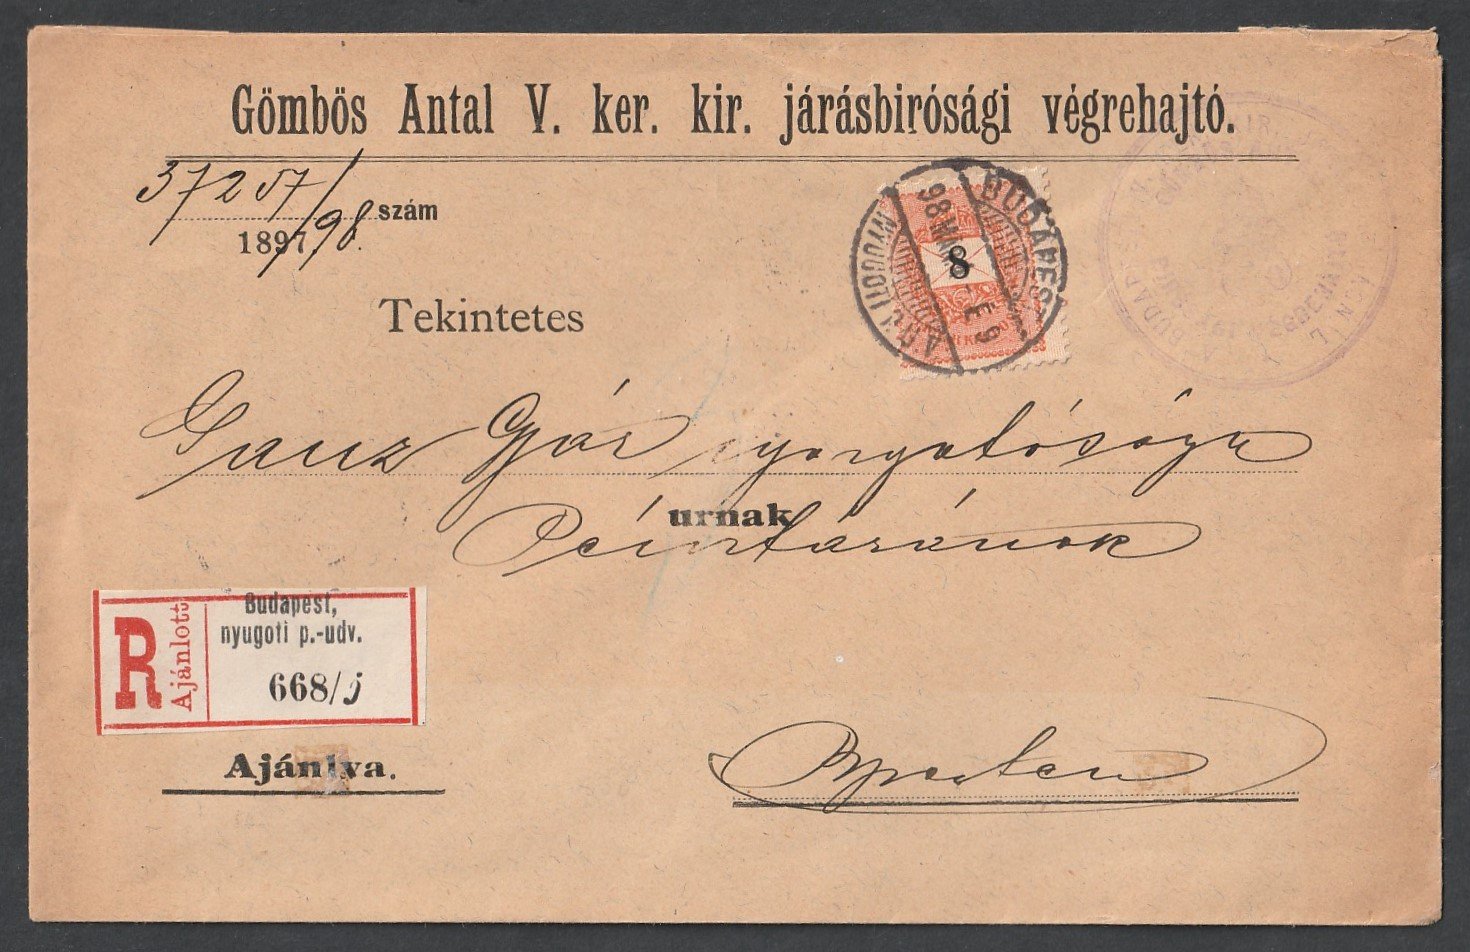 Gömbös Antal V. ker. kir. járásbirósági végrehajtó.
37257/98 szám
1897
Tekintetes
Ganz Gyár igazgatósága
urnak
BUDAPEST
98 MAR
É 9
NYUGOTI P.U.
8
R
Ajánlott
Budapest,
nyugoti p.-udv.
668/j
Ajánlva.
Bpesten